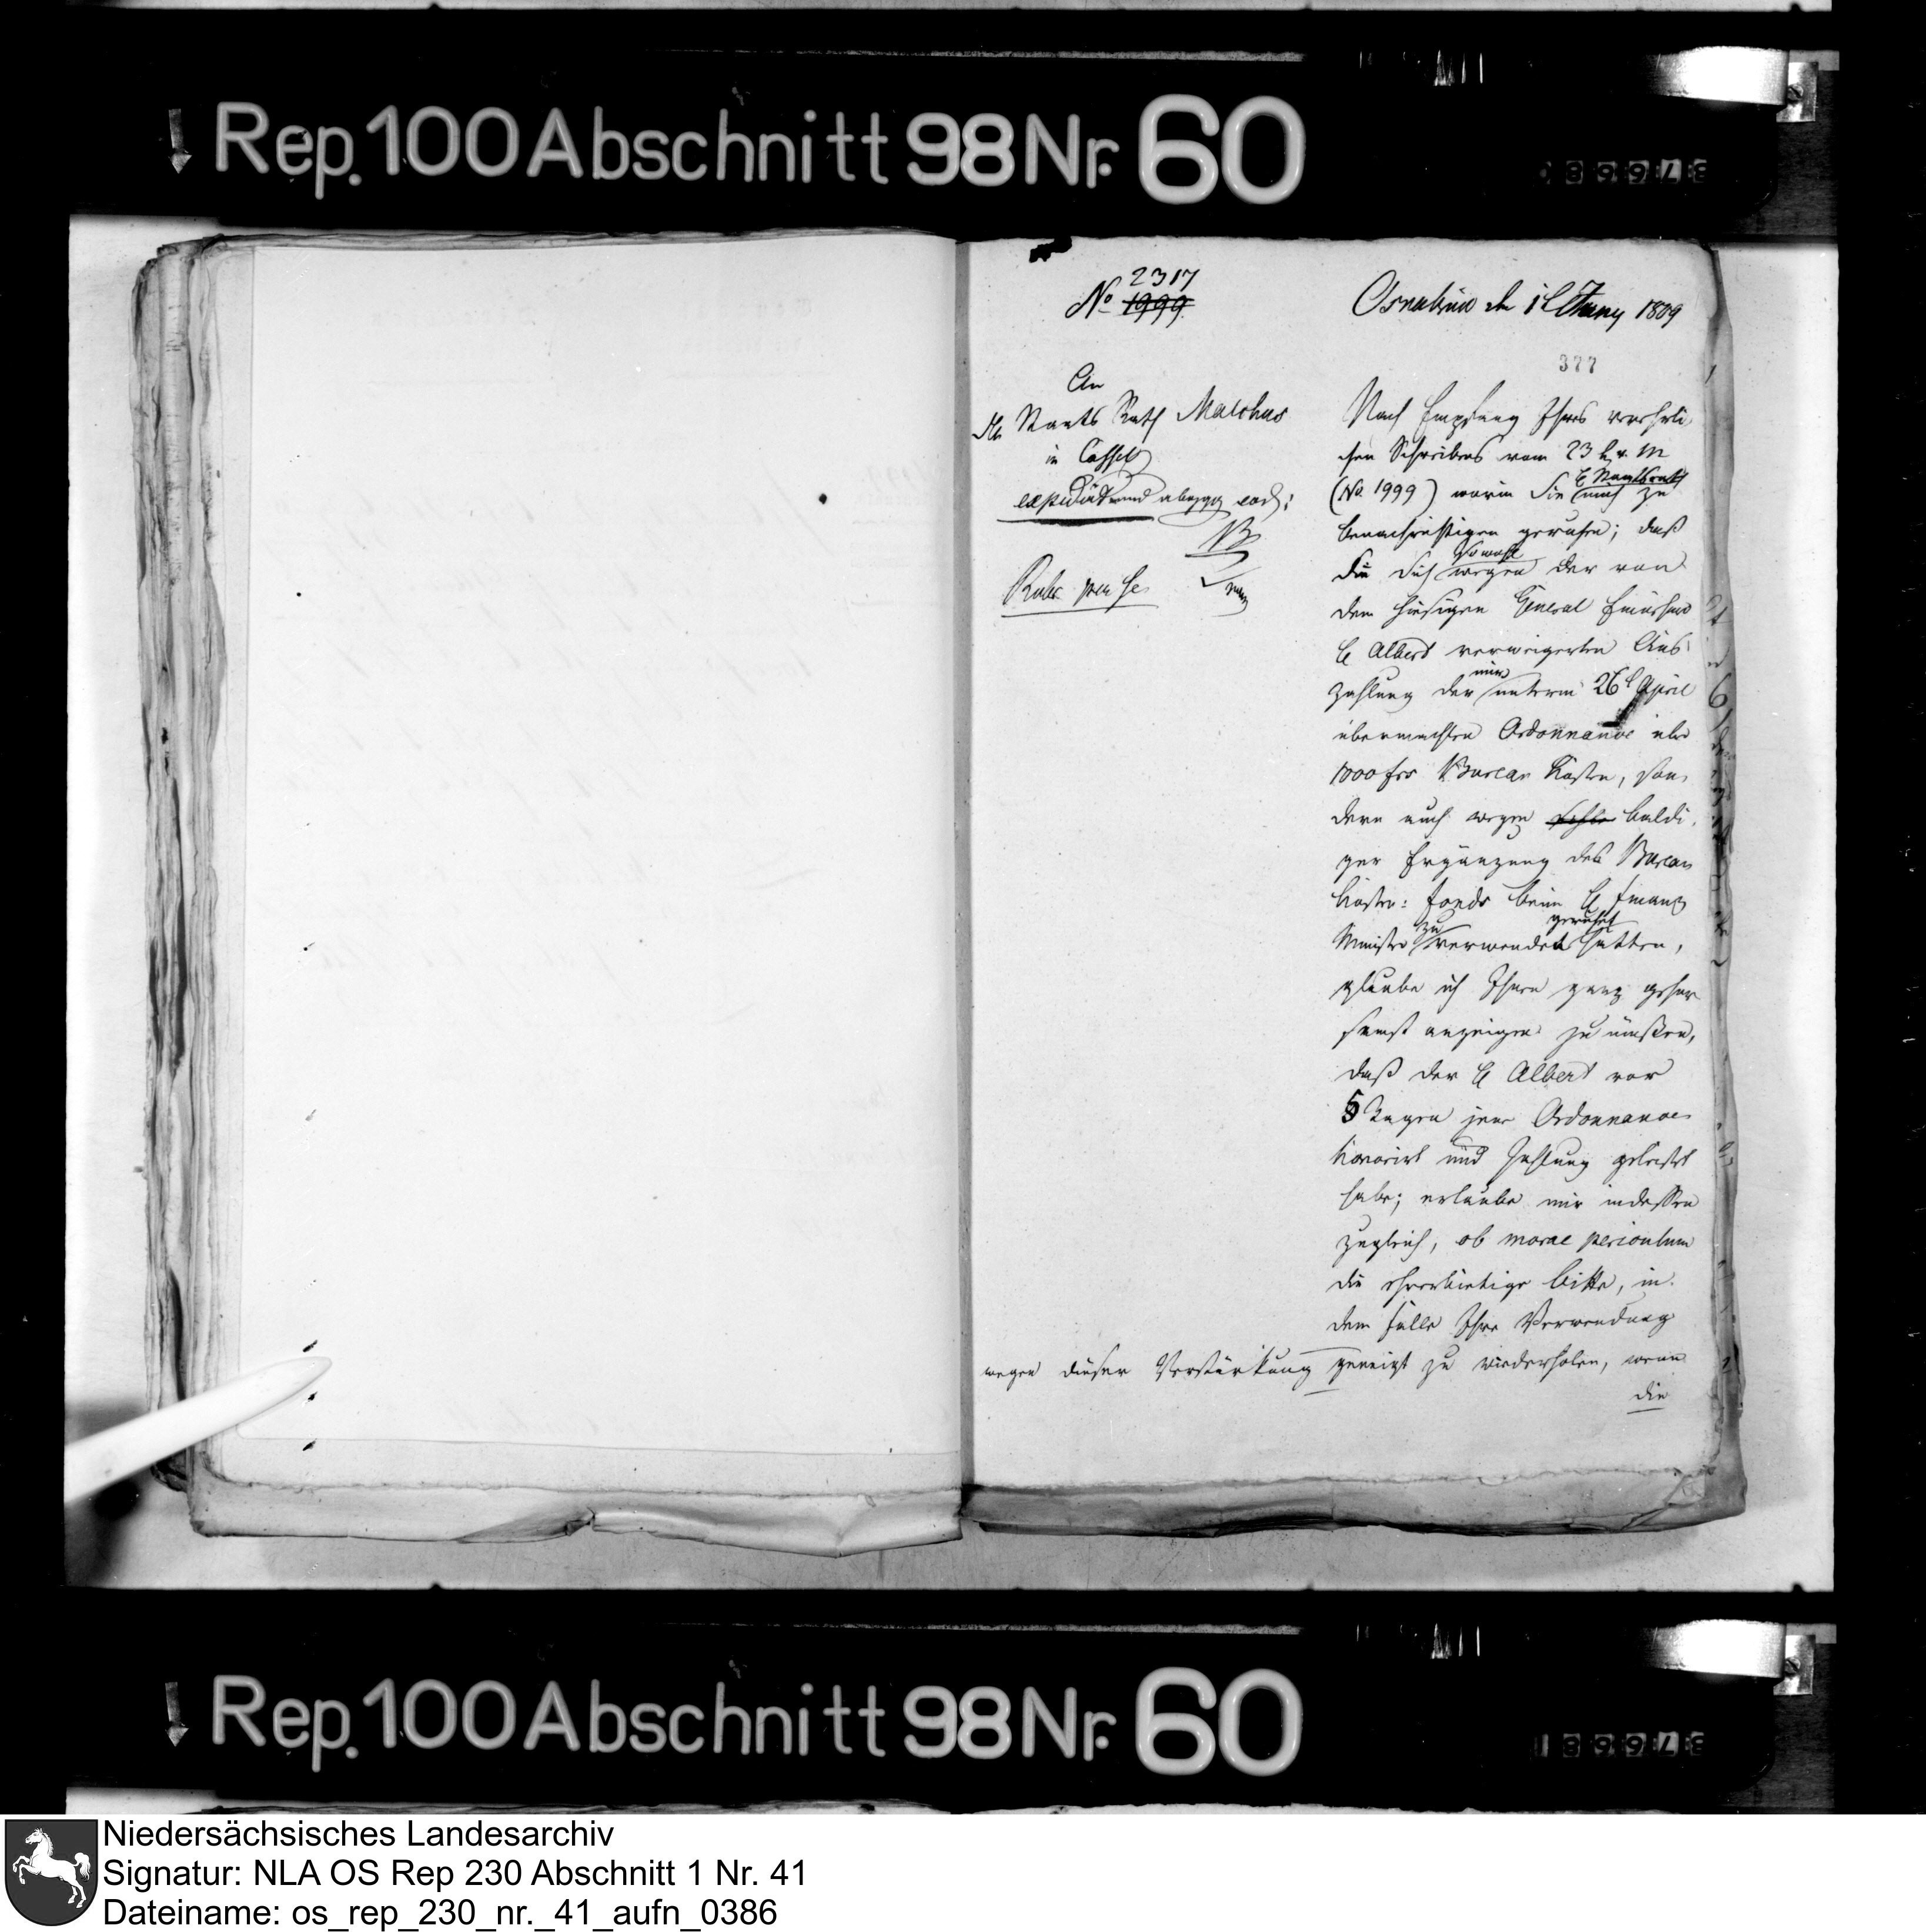 Rep. 100 Abschnitt 98 Nr. 60
2317
No 1999
Osnabrück den 1t Juny 1809
377
An
den Staats Rath Malchus
in Cassel
expedirt und abgeg eod:
Nach Empfang Ihres verehrli-
chen Schreibens vom 23 h. v. M
H Staatsrath
(No. 1999) worin Sie mich zu
benachrichtigen geruhen; daß
sowohl
Sie Sich wegen der von
dem hiesigen General Einnehmer
H Albert verweigerten Aus-
mir
zahlung der unterm 26t April
übermachten Ordonnance über
1000 frs Bureau Kosten, son-
dern auch wegen baldi-
ger Ergänzung des Bureau
Kosten: Fonds beim H Finanz
zu geruhet
Minister verwendet hatten,
glaube ich Ihnen ganz gehor-
samst anzeigen zu müßen,
daß der H Albert vor
5 Tagen jene Ordonnance
honorirt und Zahlung geleistet
habe; erlaube mir indessen
zugleich, ob morae periculum
die ehrerbietige bitte, in
dem Falle Ihre Verwendung
wegen dieser Verstärkung geneigt zu wiederholen, wenn
die
Rep. 100 Abschnitt 98 Nr. 60
Niedersächsisches Landesarchiv
Signatur: NLA OS Rep 230 Abschnitt 1 Nr. 41
Dateiname: os_rep_230_nr._41_aufn_0386